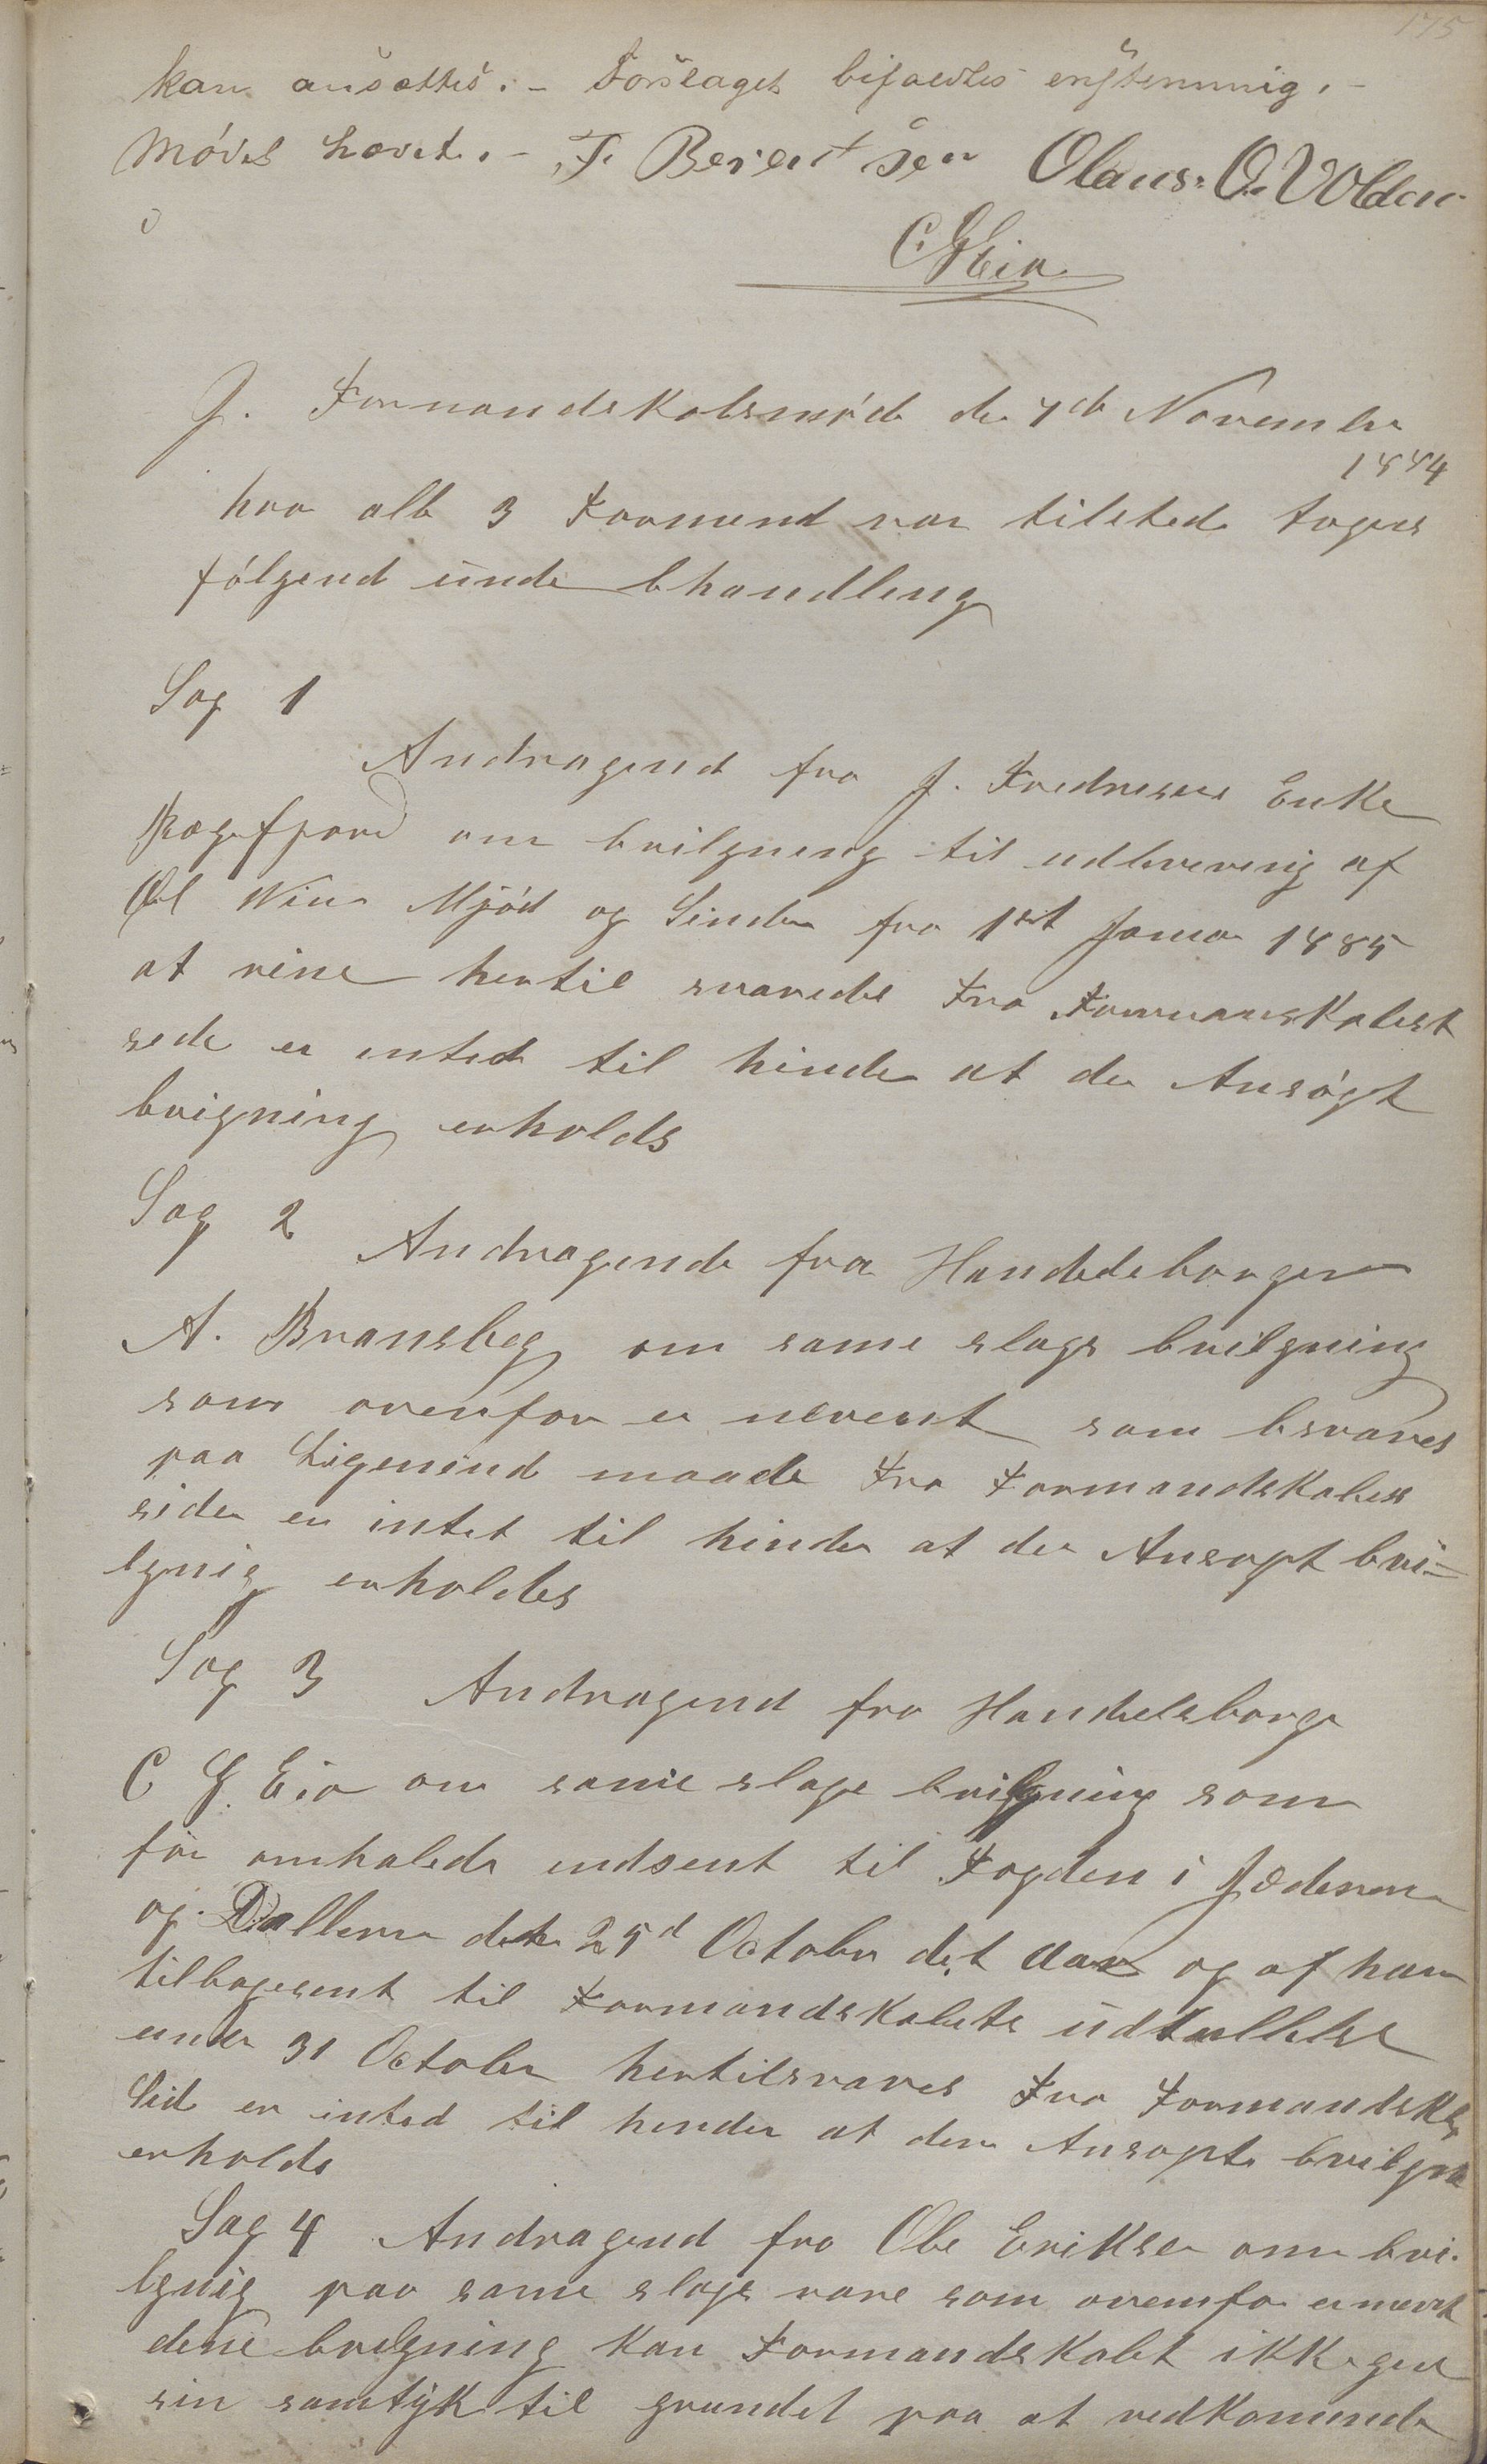 175
kan ansættes. - Forslaget bifaldtes enstemmig. -
Mødet hævet. - T. Berentsen Olaus. O. Volden
C G Eia
I. Formandskabsmøde de 7de November
1884
hvor alle 3 Formend var tilstede toges
følgend unde bhandling
Sag 1
Andragend fra J. Fredresens Enke
Rægefjord om bevilgning til udlevering af
Øl Win Mjød og Sinder fra 1st Janua 1885
at vine hertil svaredes Fra Formanskabest
sede er inted til hinde at de Ansøgt
bvigning erholds
Sag 2 Andragende fra Handelsborger
A. Bransbeg om same slags bvilgning
som ovenfor er nevent som bsvares
paa Ligenend maade Fra Formandskabes
side er intet til hinde at de Ansøgt bvi=
lgnig erholdes
Sag 3 Andragend fra Handelsborge
C G. Eia om same slags bvilgning som
før omhaleds indsent til Fogden i Jæderen
og Dallerne den 25d October det aar og af ham
tilbagesent til Formandskabets udtallelse
unde 31 October hertilsvares Fra Formandskbs
Sid er inted til hinder at den Ansøgte bvilgn
erholds
Sag 4 Andragend fra Ole Eriksen om bvi-
lgnig paa same slags vare som ovenfo er nevnt
dene bvelgning kan Formandskabet ikke give
sin samtyk til grundet paa at vedkomende